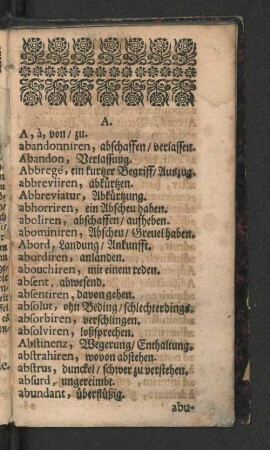 A.
A, à, von/ zu.
abandonniren, abschaffen/ verlassen.
Abandon, Verlassung.
Abbregé, ein kurtzer Begriff/ Auszug.
abbreviiren, abkürtzen.
Abbreviatur, Abkürtzung.
abhorriren, ein Abscheu haben.
aboliren, abschaffen/ aufheben.
abominiren, Abscheu/ Greuel haben.
Abord, Landung/ Ankunfft.
abordiren, anlanden.
abouchiren, mit einem reden.
absent, abwesend.
absentiren, davon gehen.
absolut, ohn Beding/ schlechterdings.
absorbiren, verschlingen.
absolviren, loßsprechen.
Abstinenz, Wegerung/ Enthaltung.
abstrahiren, wovon abstehen.
abstrus, dunckel/ schwer zu verstehen.
absurd, ungereimbt.
abundant, überflüßig.
abu-